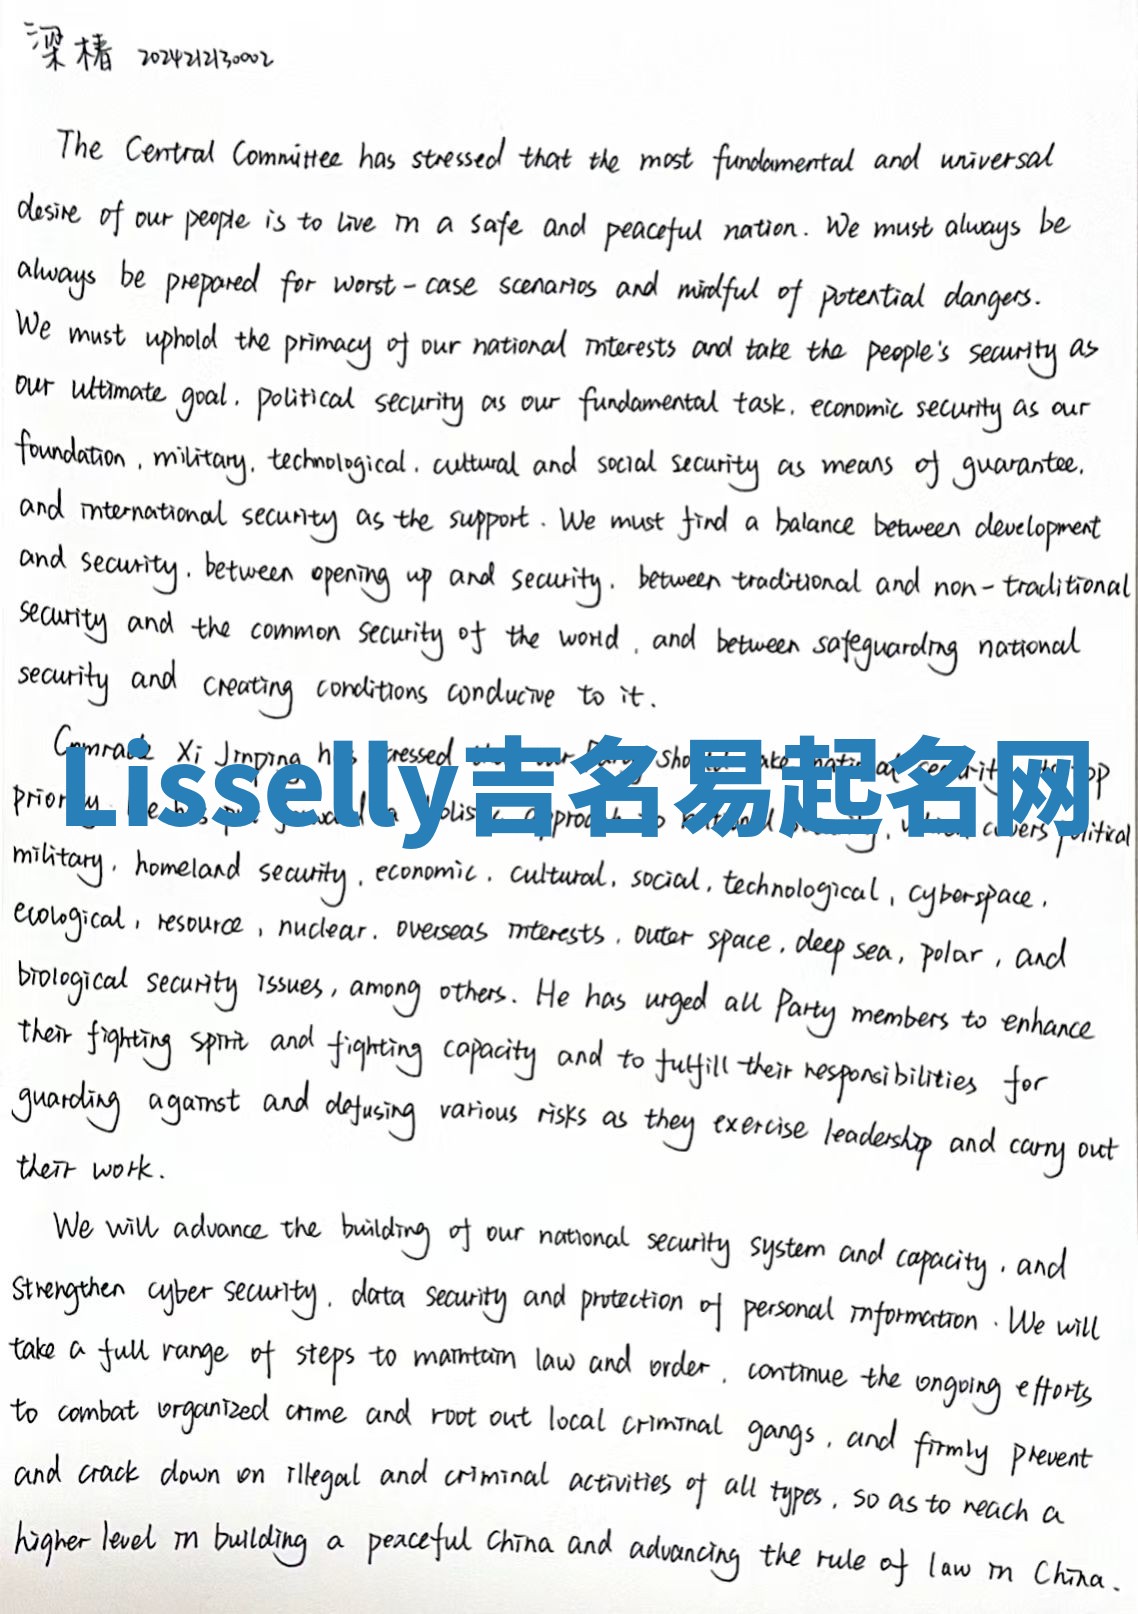 梁椿 2024212130002
The Central Committee has stressed that the most fundamental and universal
desire of our people is to live in a safe and peaceful nation. We must always be
always be prepared for worst-case scenarios and mindful of potential dangers.
We must uphold the primacy of our national interests and take the people's security as
our ultimate goal, political security as our fundamental task, economic security as our
foundation, military, technological, cultural and social security as means of guarantee,
and international security as the support. We must find a balance between development
and security, between opening up and security, between traditional and non-traditional
security and the common security of the world, and between safeguarding national
security and creating conditions conducive to it.
Comrade Xi Jinping has stressed our Party should take national security top
Lisselly吉名易起名网
priority. He has put forward a holistic approach to national security, which covers political
military, homeland security, economic, cultural, social, technological, cyberspace,
ecological, resource, nuclear, overseas interests, outer space, deep sea, polar, and
biological security issues, among others. He has urged all Party members to enhance
their fighting spirit and fighting capacity and to fulfill their responsibilities for
guarding against and defusing various risks as they exercise leadership and carry out
their work.
We will advance the building of our national security system and capacity, and
strengthen cyber security, data security and protection of personal information. We will
take a full range of steps to maintain law and order, continue the ongoing efforts
to combat organized crime and root out local criminal gangs, and firmly prevent
and crack down on illegal and criminal activities of all types, so as to reach a
higher level in building a peaceful China and advancing the rule of law in China.